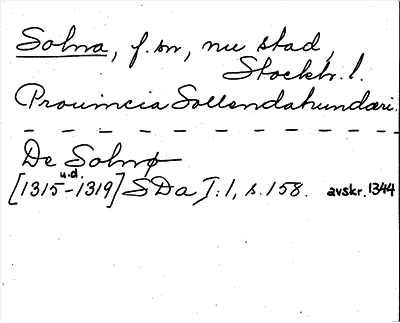 Solna, f. sn, nu stad,
Stockh. l.
Prouincia Sollendahundæri.
De Solnø
u.d.
[1315-1319] SDa I:1, s. 158. avskr. 1344